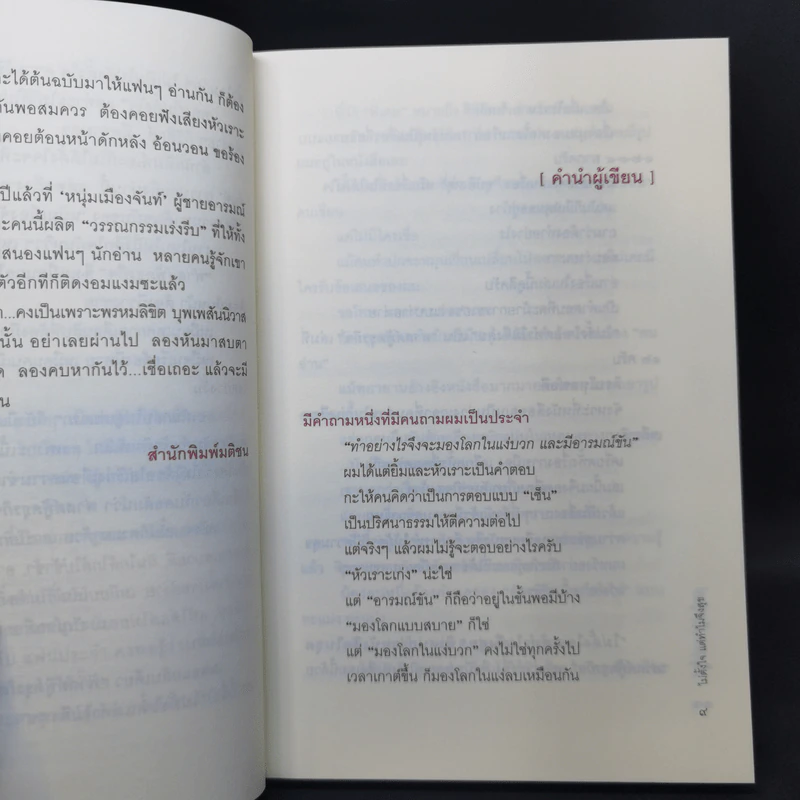 ะได้ต้นฉบับมาให้แฟนๆ อ่านกัน ก็ต้อง
ันพอสมควร ต้องคอยฟังเสียงหัวเราะ
คอยต้อนหน้าดักหลัง อ้อนวอน ขอร้อง
ปีแล้วที่ ‘หนุ่มเมืองจันท์’ ผู้ชายอารมณ์
ะคนนี้ผลิต “วรรณกรรมเร่งรีบ” ที่ให้ทั้ง
สนองแฟนๆ นักอ่าน หลายคนรู้จักเขา
ตัวอีกทีก็ติดงอมแงมซะแล้ว
...คงเป็นเพราะพรหมลิขิต บุพเพสันนิวาส
นั้น อย่าเลยผ่านไป ลองหันมาสบตา
ลองคบหากันไว้...เชื่อเถอะ แล้วจะมี
น
สำนักพิมพ์มติชน
[ คำนำผู้เขียน ]
มีคำถามหนึ่งที่มีคนถามผมเป็นประจำ
“ทำอย่างไรจึงจะมองโลกในแง่บวก และมีอารมณ์ขัน”
ผมได้แต่ยิ้มและหัวเราะเป็นคำตอบ
กะให้คนคิดว่าเป็นการตอบแบบ “เซ็น”
เป็นปริศนาธรรมให้ตีความต่อไป
แต่จริงๆ แล้วผมไม่รู้จะตอบอย่างไรครับ
“หัวเราะเก่ง” น่ะใช่
แต่ “อารมณ์ขัน” ก็ถือว่าอยู่ในขั้นพอมีบ้าง
“มองโลกแบบสบาย” ก็ใช่
แต่ “มองโลกในแง่บวก” คงไม่ใช่ทุกครั้งไป
เวลาเกาต์ขึ้น ก็มองโลกในแง่ลบเหมือนกัน
ไม่ตั้งใจ แต่ทำไมจึงสุข